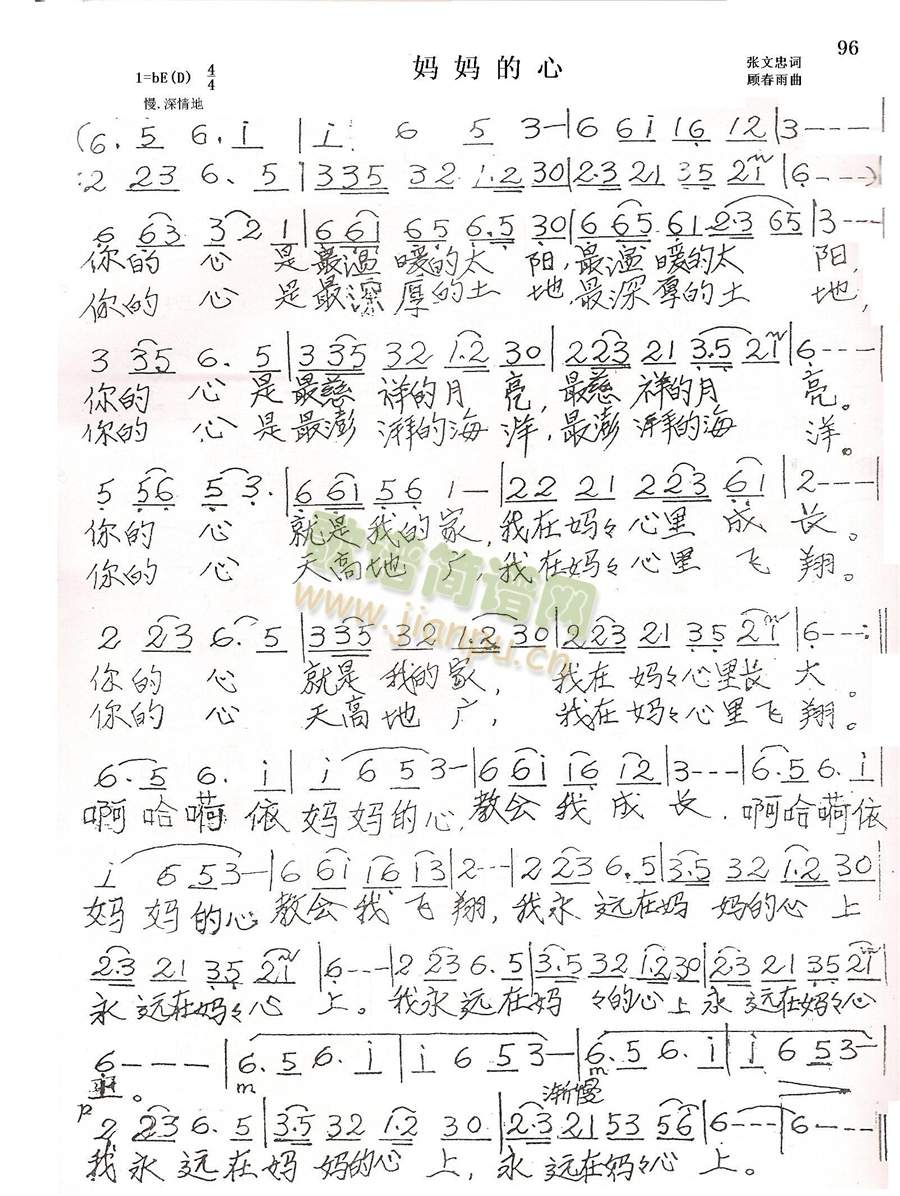 96
妈妈的心
1=bE(D) 4/4
张文忠词
顾春雨曲
慢.深情地
(6. 5 6. i | i 6 5 3— | 6 6i 16 12 | 3---- |
2 23 6. 5 | 335 32 1.2 30 | 2.3 21 35 21 | 6----)
6 63 3 2 1 | 6 61 65 6.5 30 | 6 65 61 2.3 65 | 3--- |
你的 心 是最温 暖的太 阳,最温 暖的太 阳,
你的 心 是最深 厚的土 地,最深厚的土 地,
3 335 6. 5 | 335 32 1.2 30 | 223 21 3.5 21 | 6--- |
你的 心 是最慈 祥的月 亮,最慈 祥的月 亮。
你的 心 是最澎 湃的海 洋,最澎 湃的海 洋。
5 56 5 3. | 6 61 56 1— | 22 21 223 61 | 2--- |
你的 心 就是我的家,我在妈々心里 成 长。
你的 心 天高地 广,我在妈々心里 飞 翔。
2 223 6. 5 | 335 32 1.2 30 | 223 21 35 21 | 6--:‖
你的 心 就是 我的家, 我在 妈々心里长 大。
你的 心 天高地 广, 我在妈々心里飞 翔。
6. 5 6. i | i 6 5 3— | 6 6i 16 12 | 3--- | 6.5 6. i |
啊哈嗬依妈妈的心,教会我成长,啊哈嗬依
i 6 53— | 6 6i 16 13 | 2--- | 2 23 6.5 | 3.5 32 1.2 30
妈妈的心教会我飞翔,我永远在妈 妈的心上
2.3 21 3.5 21 | 6--- | 2 23 6. 5 | 3.5 32 1.2 30 | 2.3 21 3.5 21
永远在妈々心 上。我永远在妈 々的心上永远在妈々心
6 - - - | 6.5 6. i | i 6 53— | 6.5 6. i | i 6 53—
。 m 渐慢 m
p
2 23 6. 5 | 3.5 32 1.2 30 | 2.3 21 53 56 | 6-- | 6-- ‖
我永远在妈妈的心上,永远在妈々心上。
财谱简谱网
www.jianpu.cn